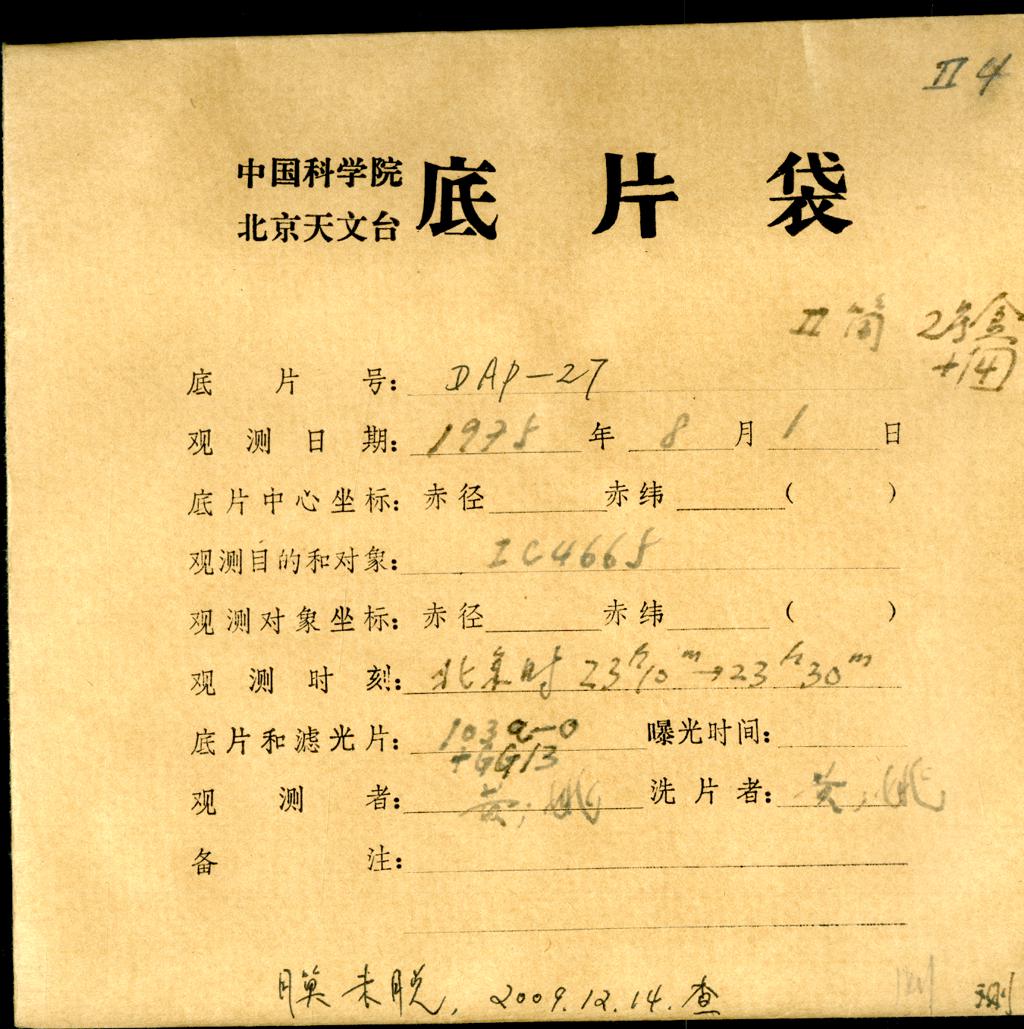 II 4
中国科学院
北京天文台
底片袋
II 筒 2号盒
+14
底片号: DAP-27
观测日期: 1975 年 8 月 1 日
底片中心坐标: 赤径 赤纬 ( )
观测目的和对象: IC4665
观测对象坐标: 赤径 赤纬 ( )
观测时刻: 北京时 23h10m→23h30m
底片和滤光片: 103a-O 曝光时间:
+GG13
观测者: 黄, 姚 洗片者: 黄, 姚
备注:
膜未脱, 2009.12.14.查